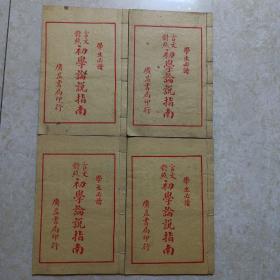 學生必讀
言文對照初學論說指南
廣益書局印行
學生必讀
言文對照初學論說指南
廣益書局印行
學生必讀
言文對照初學論說指南
廣益書局印行
學生必讀
言文對照初學論說指南
廣益書局印行